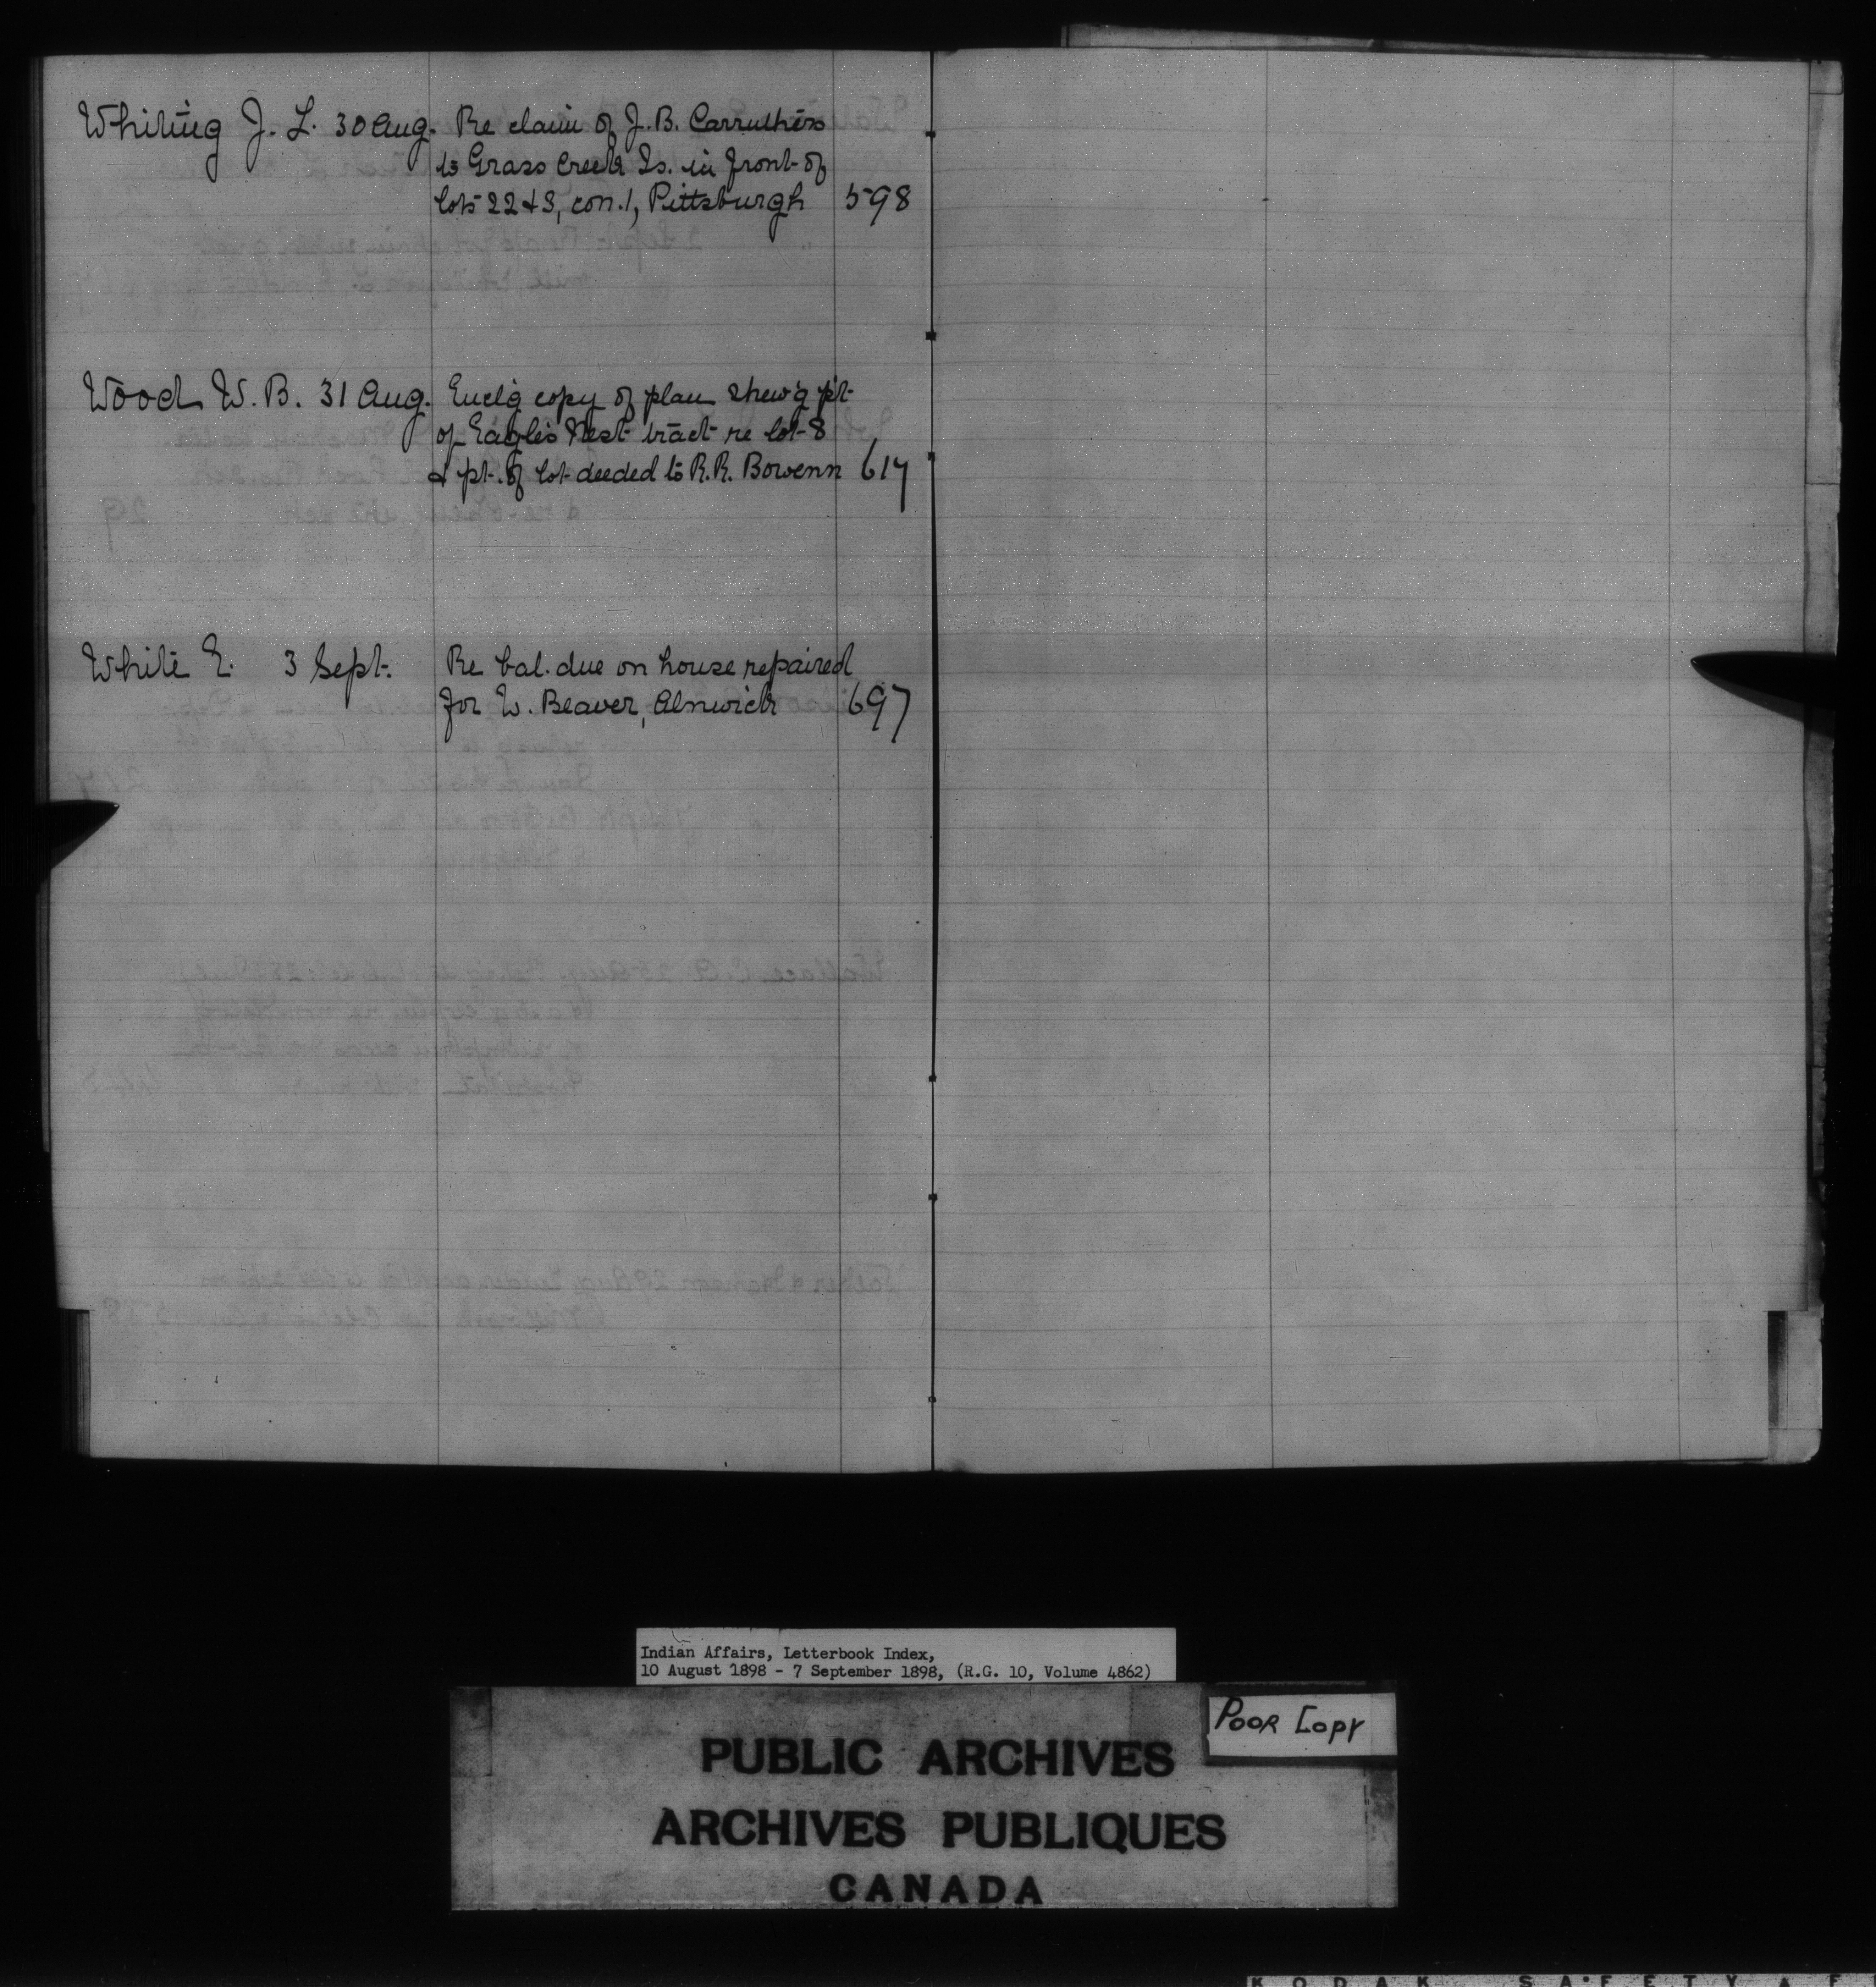 Whiting J. L. 30 Aug. Re claim of J. B. Carruthers
to Grass Creek Is. in front of
lots 22 & 3, con. 1, Pittsburgh 598
Wood W. B. 31 Aug. Encl'g copy of plan shew'g pt.
of Eagle's Nest tract re lot 8
& pt. of lot deeded to R. R. Bowenn 617
White E. 3 Sept. Re bal. due on house repaired
for W. Beaver, Alnwick 697
Indian Affairs, Letterbook Index,
10 August 1898 - 7 September 1898, (R.G. 10, Volume 4862)
POOR COPY
PUBLIC ARCHIVES
ARCHIVES PUBLIQUES
CANADA
KODAK SAFETY